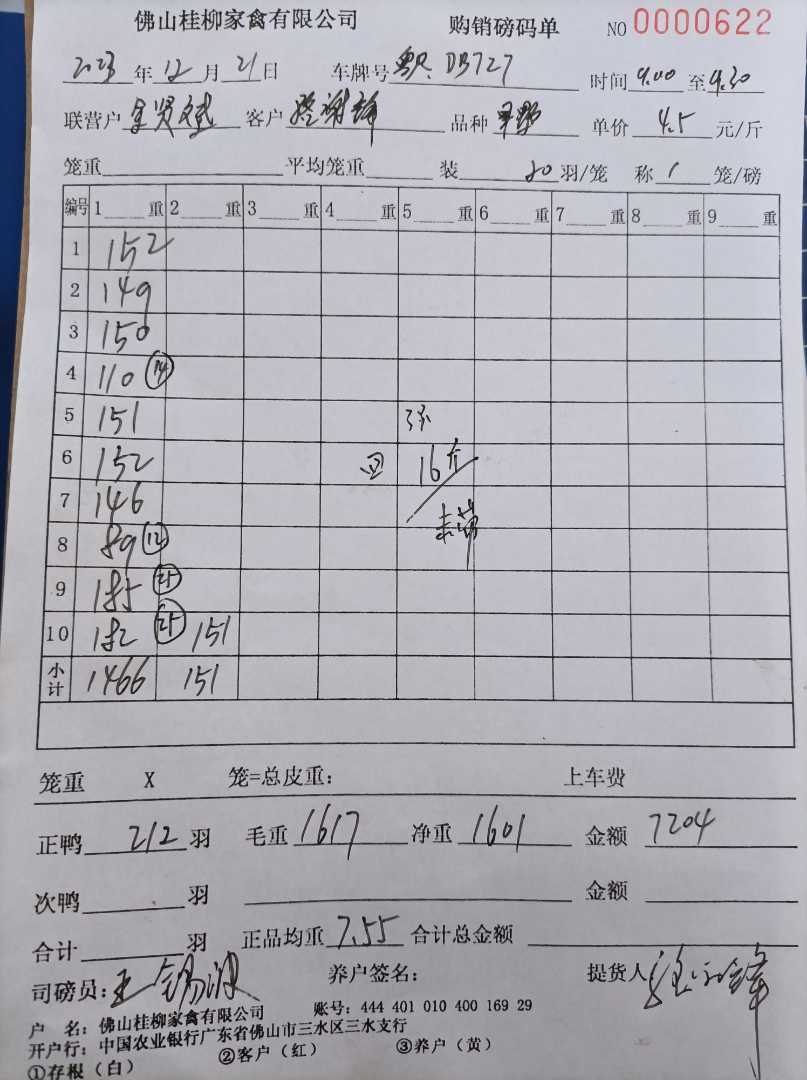 佛山桂柳家禽有限公司 购销磅码单 NO 0000622
2023 年 12 月 21 日 车牌号 DB727 时间 9.00 至 9.30
联营户 客户 品种 单价 4.5 元/斤
笼重 平均笼重 装 20 羽/笼 称 1 笼/磅
编号 1 重 2 重 3 重 4 重 5 重 6 重 7 重 8 重 9 重
1 152
2 149
3 150
4 110 14
5 151
6 152 16斤
7 146
8 89 12
9 185 25
10 182 25 151
小计 1466 151
笼重 X 笼=总皮重: 上车费
正鸭 212 羽 毛重 1617 净重 1601 金额 7204
次鸭 羽 金额
合计 羽 正品均重 7.55 合计总金额
司磅员: 王锡波 养户签名: 提货人
户 名: 佛山桂柳家禽有限公司 账号: 444 401 010 400 169 29
开户行: 中国农业银行广东省佛山市三水区三水支行
①存根(白) ②客户(红) ③养户(黄)